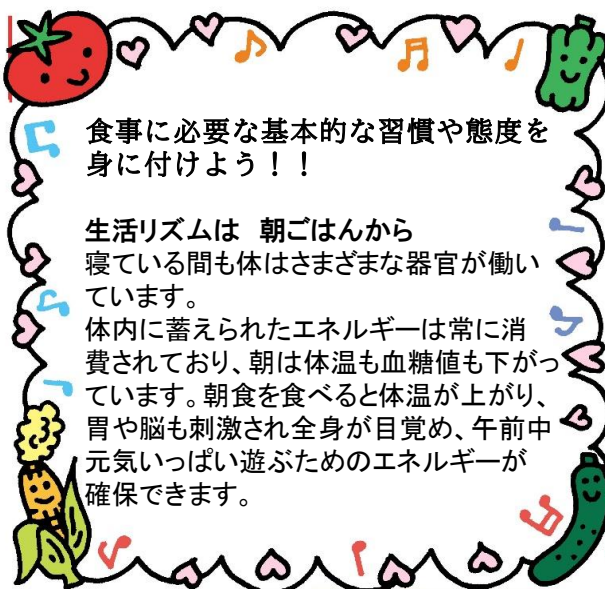 食事に必要な基本的な習慣や態度を
身に付けよう！！
生活リズムは　朝ごはんから
寝ている間も体はさまざまな器官が働い
ています。
体内に蓄えられたエネルギーは常に消
費されており、朝は体温も血糖値も下がっ
ています。朝食を食べると体温が上がり、
胃や脳も刺激され全身が目覚め、午前中
元気いっぱい遊ぶためのエネルギーが
確保できます。